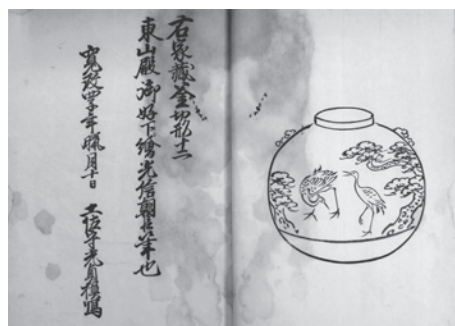 右家藏釜切形十二
東山殿御好下繪光信朝臣筆也
寛政四子年臘月十日 土佐守光貞模寫